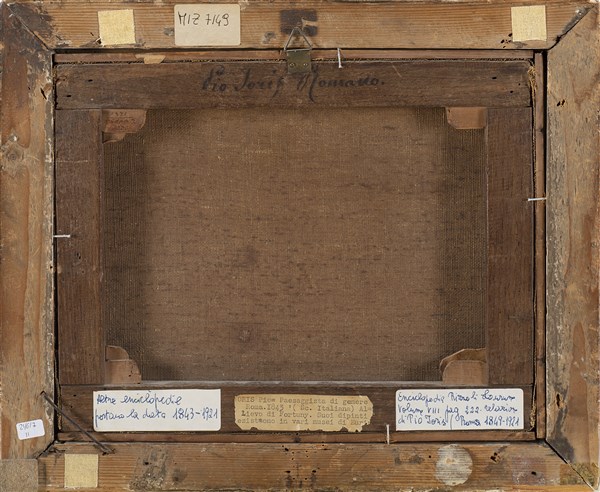 MIZ 7149
Pio Joris Romano.
Altre enciclopedie
portano la data 1843-1921
Paesaggista di genere
Roma.1843 ( Sc. Italiana) Al-
lievo di Fortuny. Suoi dipinti
esistono in vari musei di
Enciclopedia
Volume VIII pag 222 relazione
di Pio Joris / Roma 1849-1921